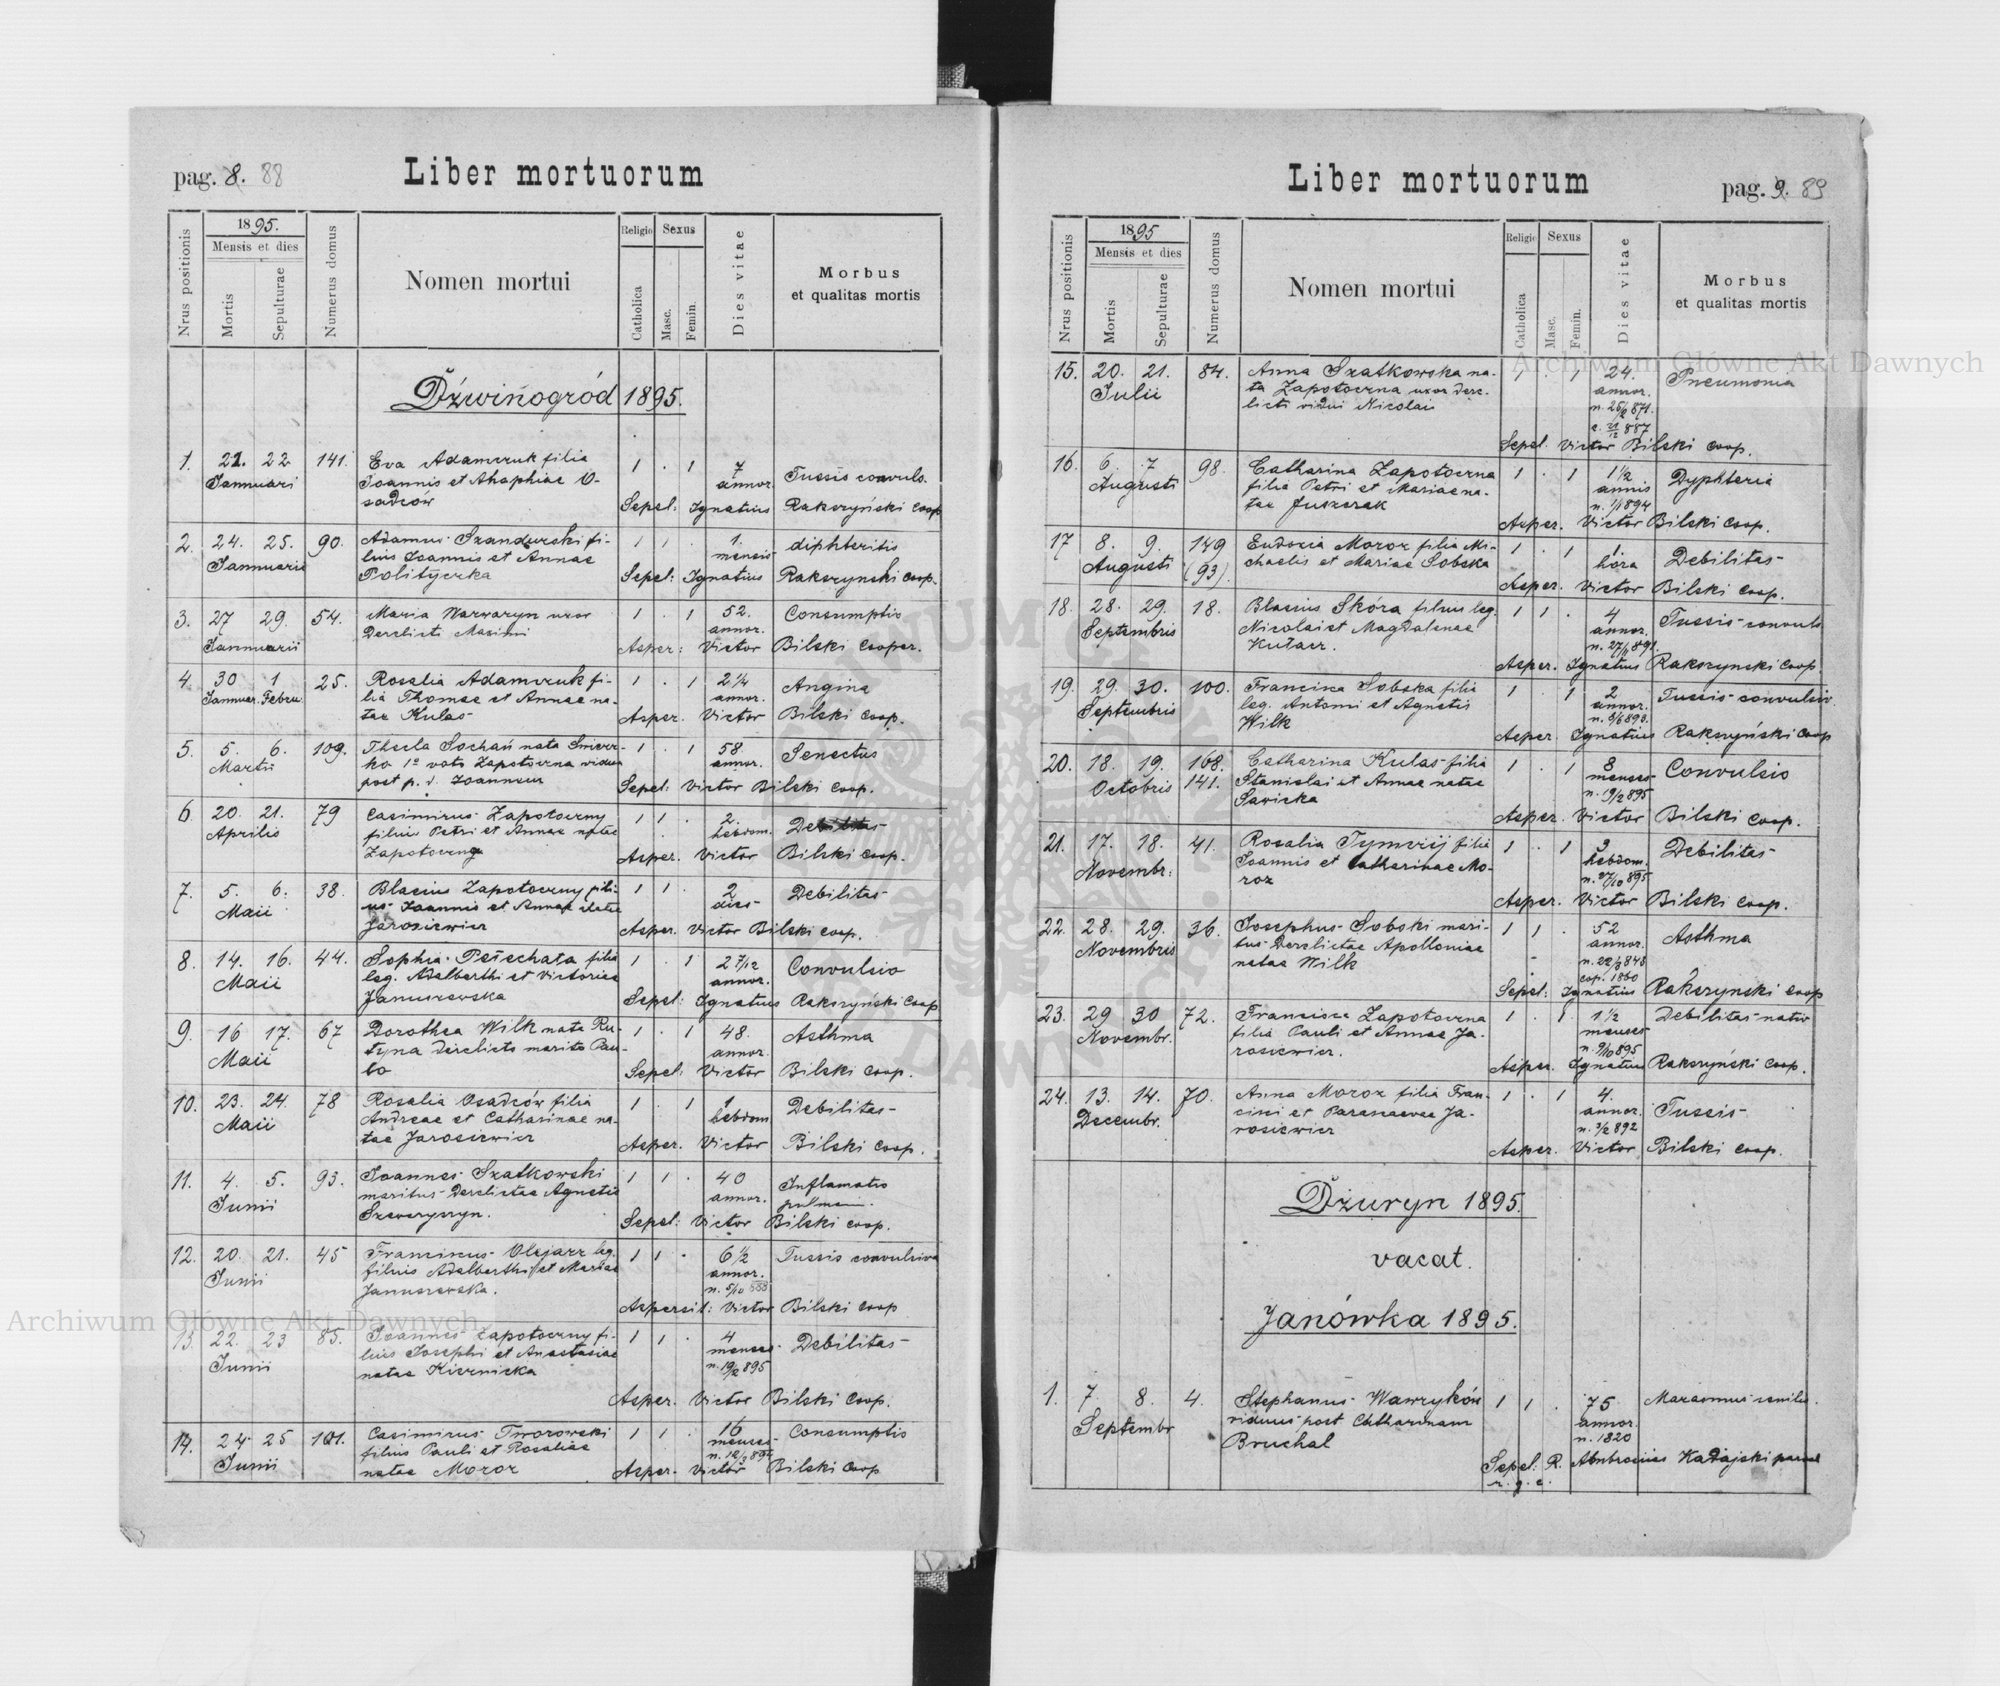 pag. 8. 88
Liber mortuorum
Nrus positionis
1895.
Mensis et dies
Mortis
Sepulturae
Numerus domus
Nomen mortui
Religio
Catholica
Sexus
Masc.
Femin.
Dies vitae
Morbus
et qualitas mortis
Dźwinogród 1895.
1. 21. 22 141. Eva Adamczuk filia 1 . 1 7 Tussis convuls.
Januari Joannis et Ahaphiae O- annor.
sadców Sepel: Ignatius Rakszyński Coop
2. 24. 25. 90. Adamus Szandurski fi- 1 1 . 1. diphteritis
Januarii lius Joannis et Annae mensis
Polityczka Sepel: Ignatius Rakszynski Coop.
3. 27 29. 54. Maria Warwaryn uxor 1 . 1 52. Consumptio
Januarii Derelicti Maximi annor.
Asper: Victor Bilski Cooper.
4. 30 1 25. Rosalia Adamczuk fi- 1 . 1 2 1/4 Angina
Januar. Febru lia Thomae et Annae na- annor.
tae Kulas Asper. Victor Bilski Coop.
5. 5. 6. 109. Thecla Sochań nata 1 . 1 58. Senectus
Martii ko 1o voto Zapotoczna vidua annor.
post p. d. Joannem Sepel: Victor Bilski Coop.
6 20. 21. 79 Casimirus Zapotoczny 1 1 . 2. Debilitas
Aprilis filius Petri et Annae natae hebdom.
Zapotoczny Asper. Victor Bilski Coop.
7. 5. 6. 38. Blasius Zapotoczny fili- 1 1 . 2 Debilitas
Maii us Joannis et Annae natae dies
Jarosiewicz Asper. Victor Bilski Coop.
8. 14. 16. 44. Sophia Pełechata filia 1 . 1 2 7/12 Convulsio
Maii leg. Adalberthi et Victoriae annor.
Januszewska Sepel: Ignatius Rakszyński Coop
9. 16 17. 67 Dorothea Wilk nata Ru- 1 . 1 48. Asthma
Maii tyna derelicto marito Pau- annor.
lo Sepel: Victor Bilski Coop.
10. 23. 24. 78 Rosalia Osadców filia 1 . 1 1 Debilitas
Maii Andreae et Catharinae na- hebdom
tae Jarosiewicz Asper. Victor Bilski Coop.
11. 4. 5. 93. Joannes Szatkowski 1 1 . 40 Inflamatio
Junii maritus Derelictae Agnetis annor. pulmon.
Szewczyszyn. Sepel: Victor Bilski Coop.
12. 20. 21. 45 Franciscus Olejarz leg. 1 1 . 6 1/2 Tussis convulsiva
Junii filius Adalberthi et Mariae annor.
Januszewska. n. 5/10 888
Aspersit: Victor Bilski Coop
13. 22. 23 85. Joannes Zapotoczny fi- 1 1 . 4 Debilitas
Junii lius Josephi et Anastasiae menses
natae Kiernicka n. 19/2 895
Asper. Victor Bilski Coop.
14. 24 25 101. Casimirus Tworowski 1 1 . 16 Consumptio
Junii filius Pauli et Rosaliae menses
natae Moroz n. 12/3 894
Asper. Victor Bilski Coop
Liber mortuorum
pag. 9. 89
Nrus positionis
1895
Mensis et dies
Mortis
Sepulturae
Numerus domus
Nomen mortui
Religio
Catholica
Sexus
Masc.
Femin.
Dies vitae
Morbus
et qualitas mortis
15. 20. 21. 84. Anna Szatkowska na- 1 . 1 24. Pneumonia
Julii ta Zapotoczna uxor dere- annor.
licti vidui Nicolai n. 25/2 871.
c. 21/12 887
Sepel. Victor Bilski Coop.
16. 6. 7 98. Catharina Zapotoczna 1 . 1 1 1/2 Dyphteria
Augusti filia Petri et Mariae na- annis
tae Juszczak n. 1/1 894
Asper. Victor Bilski Coop.
17 8. 9. 149 Eudoxia Moroz filia Mi- 1 . 1 1 Debilitas
Augusti (93). chaelis et Mariae Sobska hora
Asper. Victor Bilski Coop.
18. 28. 29. 18. Blasius Skóra filius leg. 1 1 . 4 Tussis convuls
Septembris Nicolai et Magdalenae annor.
Kułacz. n. 27/1 891.
Asper. Ignatius Rakszynski Coop
19. 29. 30. 100. Francisca Sobska filia 1 . 1 2 Tussis convulsiv.
Septembris leg. Antonii et Agnetis annor.
Wilk n. 8/6 893.
Asper. Ignatius Rakszyński Coop
20. 18. 19. 168. Catharina Kulas filia 1 . 1 8 Convulsio
Octobris 141. Stanislai et Annae natae menses
Savicka n. 19/2 895
Asper. Victor Bilski Coop.
21. 17. 18. 41. Rosalia Tymczij filia 1 . 1 3 Debilitas
Novembr: Joannis et Catharinae Mo- hebdom.
roz n. 27/10 895
Asper. Victor Bilski Coop.
22. 28. 29. 36. Josephus Sobski mari- 1 1 . 52 Asthma
Novembris tus Derelictae Apolloniae annor.
natae Wilk n. 22/3 843
cop. 1860
Sepel: Ignatius Rakszynski Coop
23. 29 30 72. Francisca Zapotoczna 1 . 1 1 1/2 Debilitas nativ
Novembr. filia Pauli et Annae Ja- menses
rosiewicz. n. 9/10 895
Asper. Ignatius Rakszyński Coop.
24. 13. 14. 70. Anna Moroz filia Fran- 1 . 1 4. Tussis
Decembr. cisci et Parascevae Ja- annor.
rosiewicz n. 3/2 892
Asper. Victor Bilski Coop.
Dżuryn 1895.
vacat.
Janówka 1895.
1. 7 8. 4. Stephanus Wawryków 1 1 . 75 Marasmus senilis.
Septembr viduus post Catharinam annor.
Bruchal n. 1820
Sepel: R. Ambrosius Kadajski paroch
r. g. c.
Archiwum Główne Akt Dawnych
Archiwum Główne Akt Dawnych